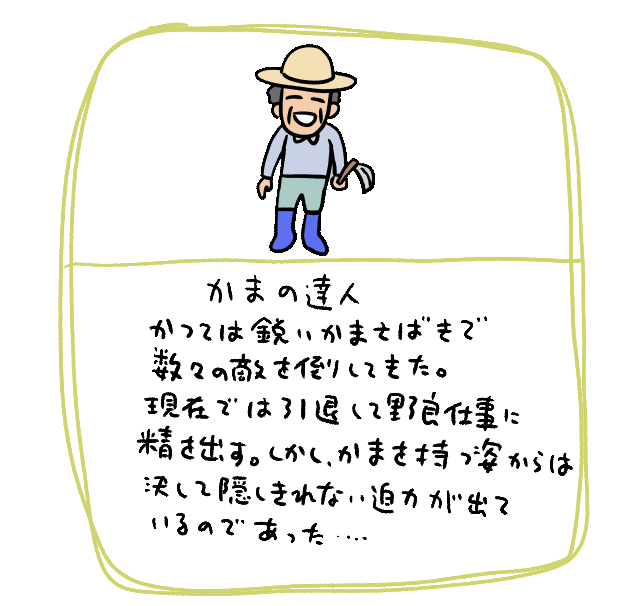 かまの達人
かつては鋭いかまさばきで
数々の敵を倒してきた。
現在では引退して野良仕事に
精を出す。しかし、かまを持つ姿からは
決して隠しきれない迫力が出て
いるのであった‥‥